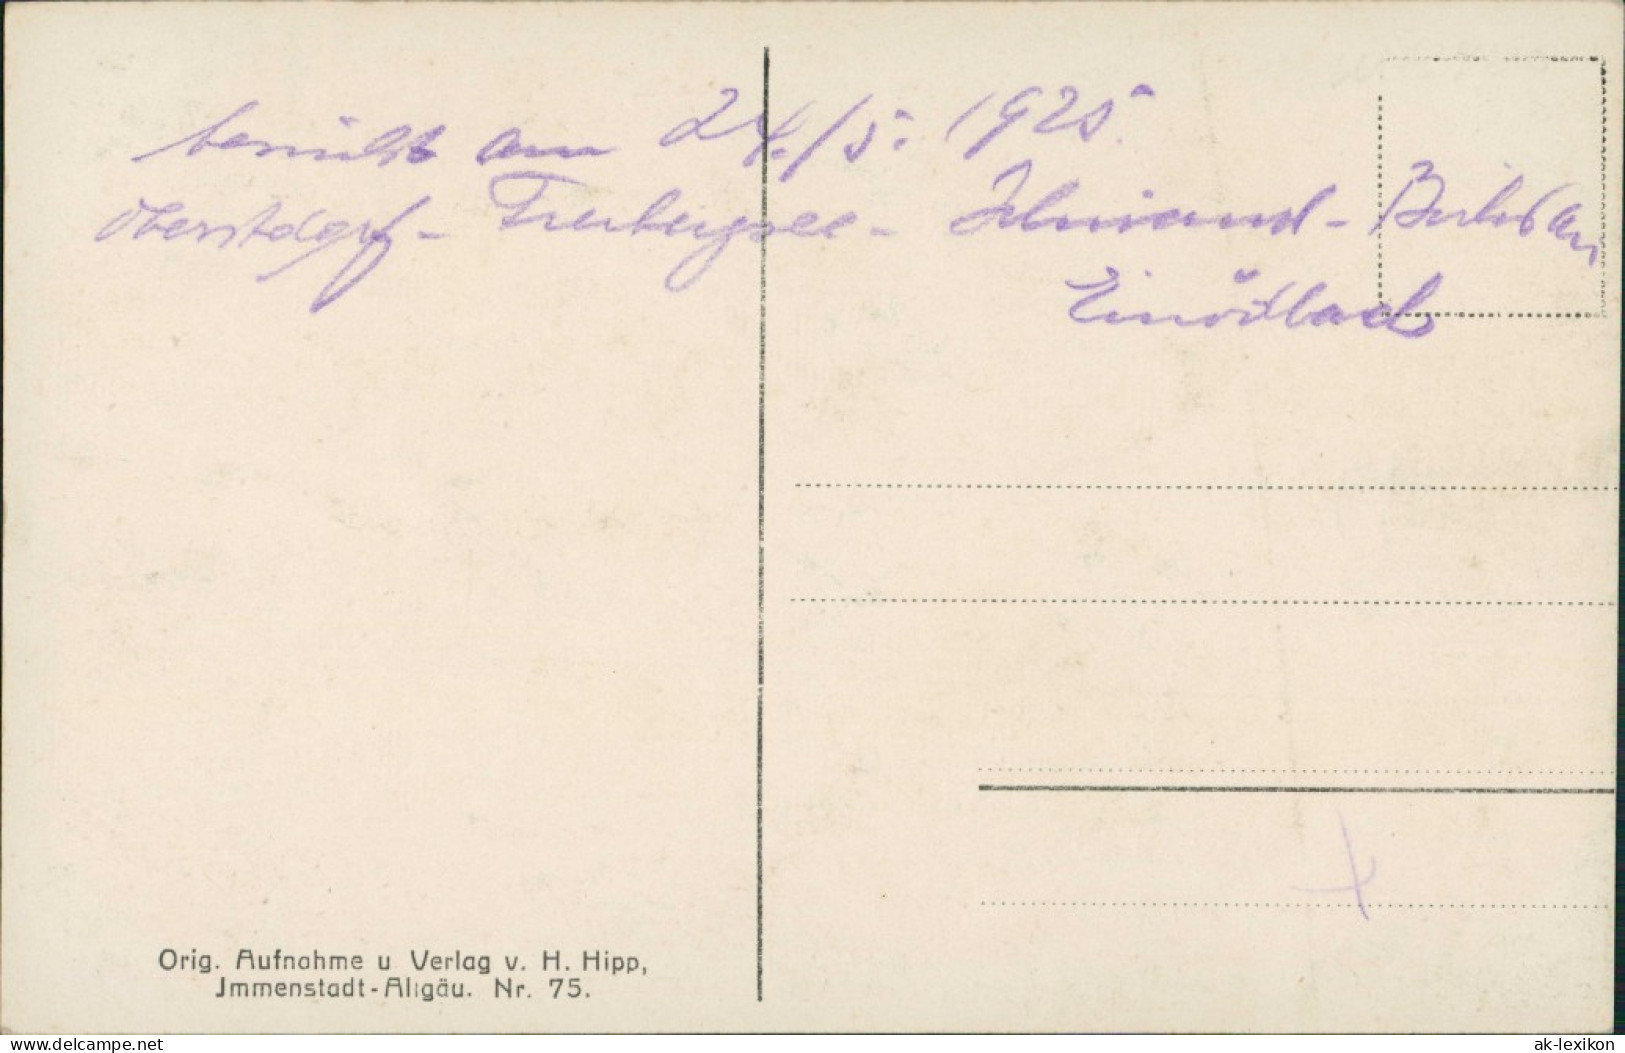 besucht am 24./5. 1925.
Oberstdorf - Freibergsee - Schwand - Birbsau
Einödsbach
Orig. Aufnahme u Verlag v. H. Hipp,
Jmmenstadt-Allgäu. Nr. 75.
delcampe.net
ak-lexikon